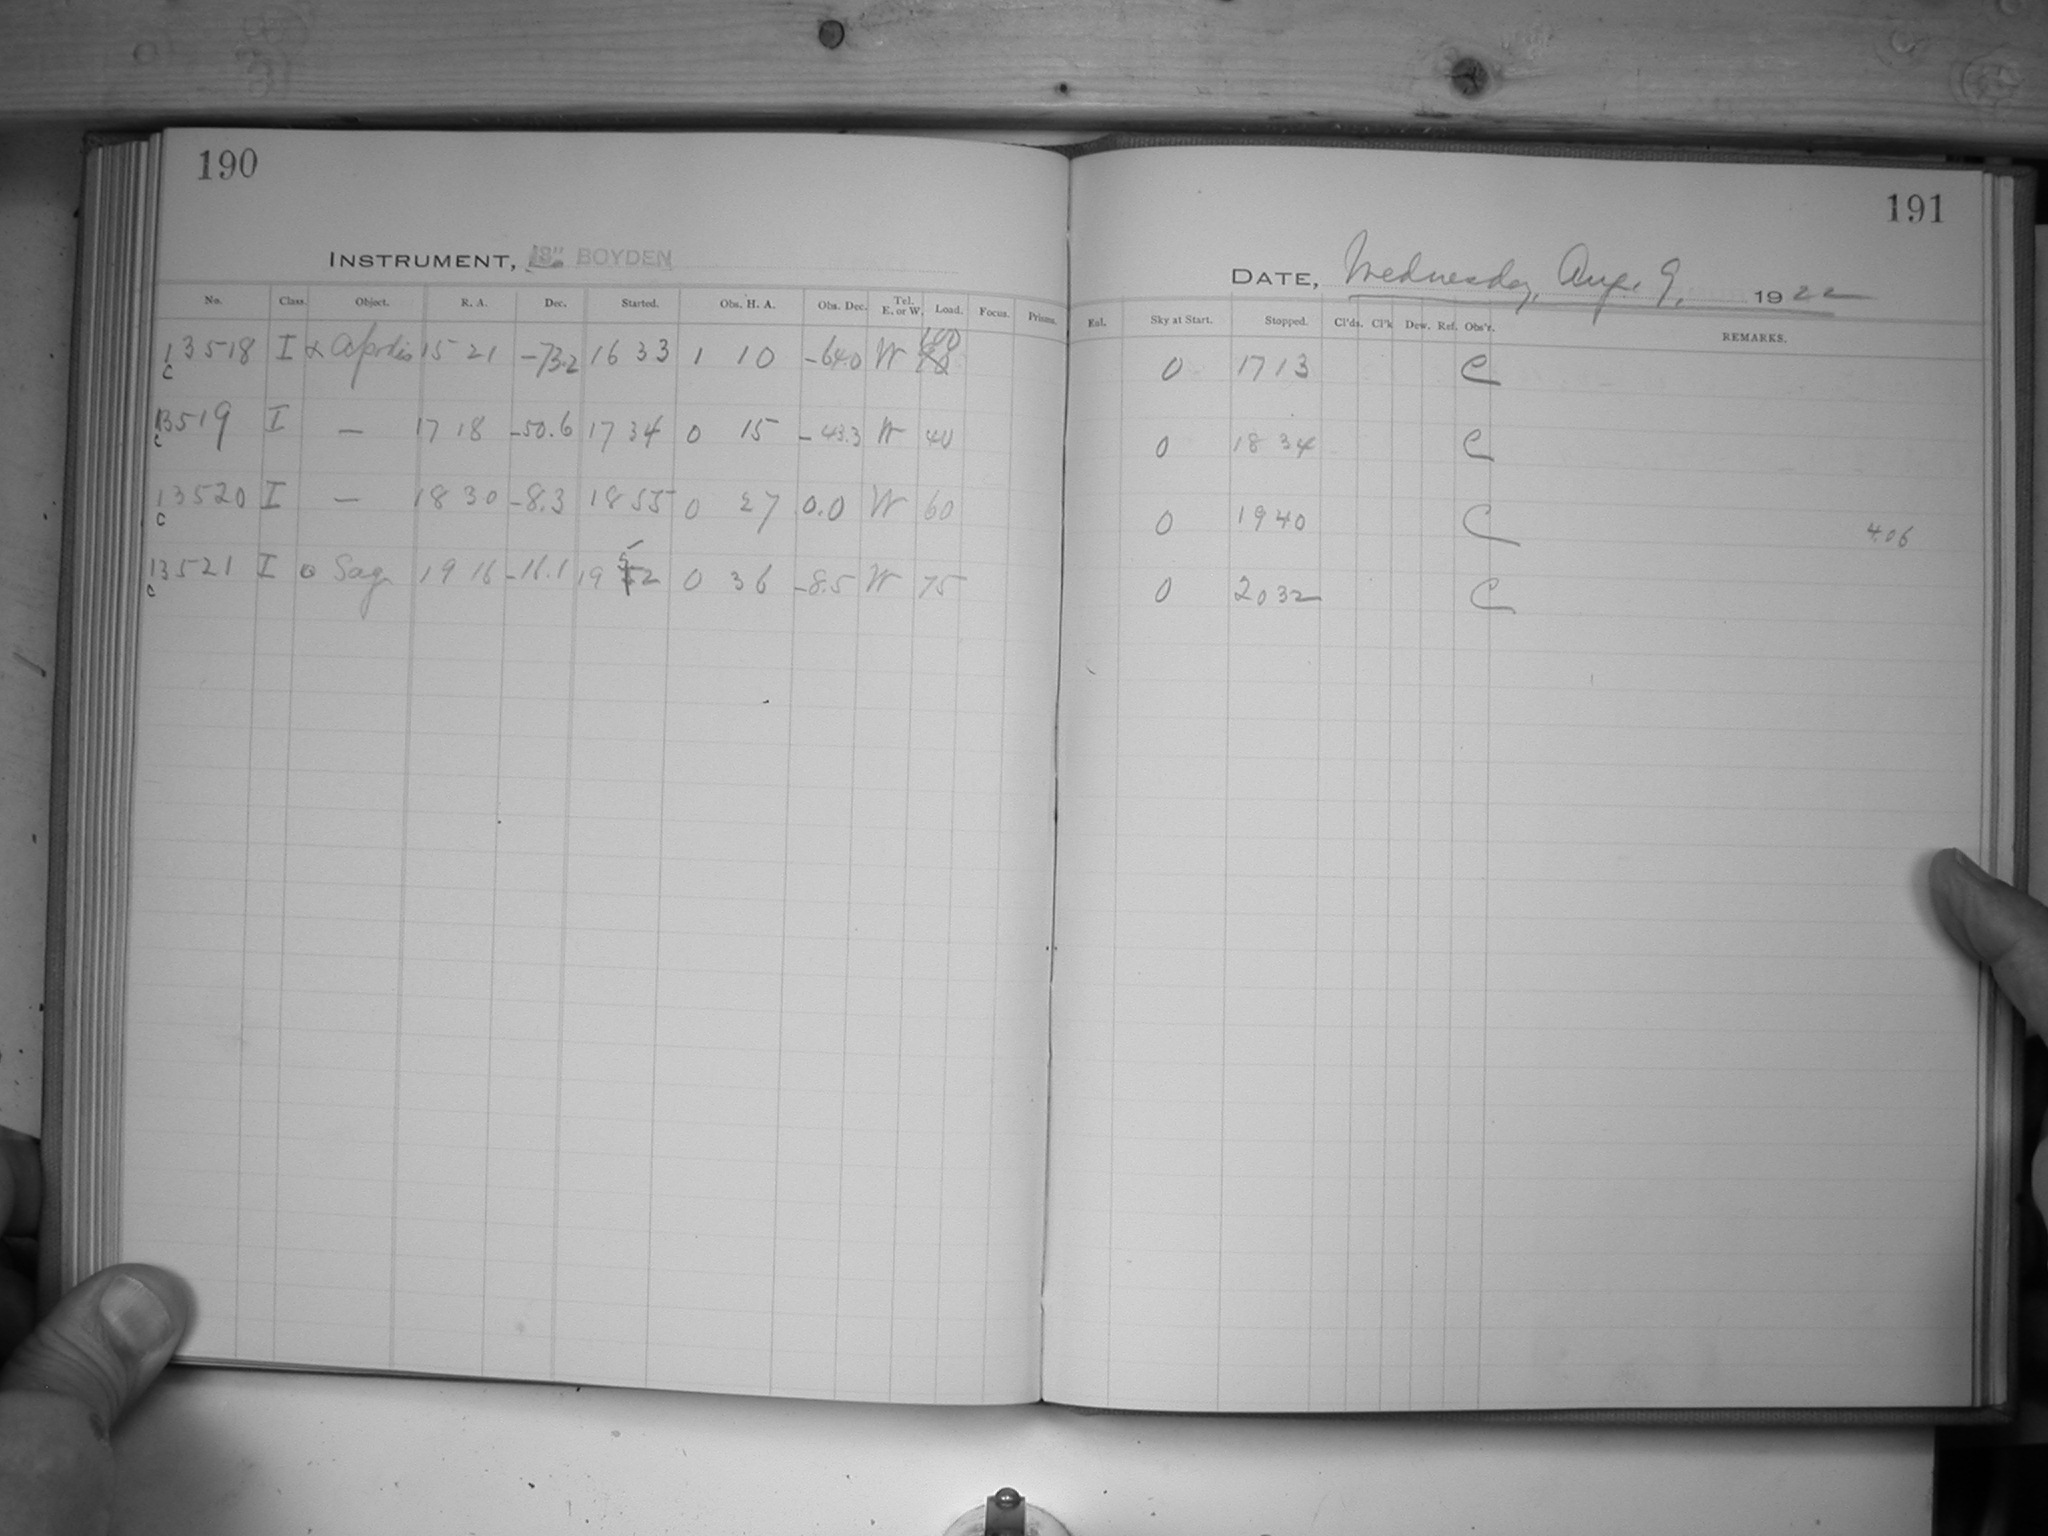 190
INSTRUMENT, BOYDEN
No. Class. Object. R. A. Dec. Started. Obs. H. A. Obs. Dec. Tel. E. or W. Load. Focus. Prisms.
13518 I α Apodis 15 21 -73.2 16 33 1 10 -64.0 W 100
C
13519 I — 17 18 -50.6 17 34 0 15 -43.3 W 40
C
13520 I — 18 30 -8.3 18 55 0 27 0.0 W 60
C
13521 I o Sag 19 16 -16.1 19 52 0 36 -8.5 W 75
C
191
DATE, Wednesday, Aug. 9, 1922
Enl. Sky at Start. Stopped. Cl'ds. Cl'k Dew. Ref. Obs'r. REMARKS.
0 17 13 C
0 18 34 C
0 19 40 C 4.06
0 20 32 C